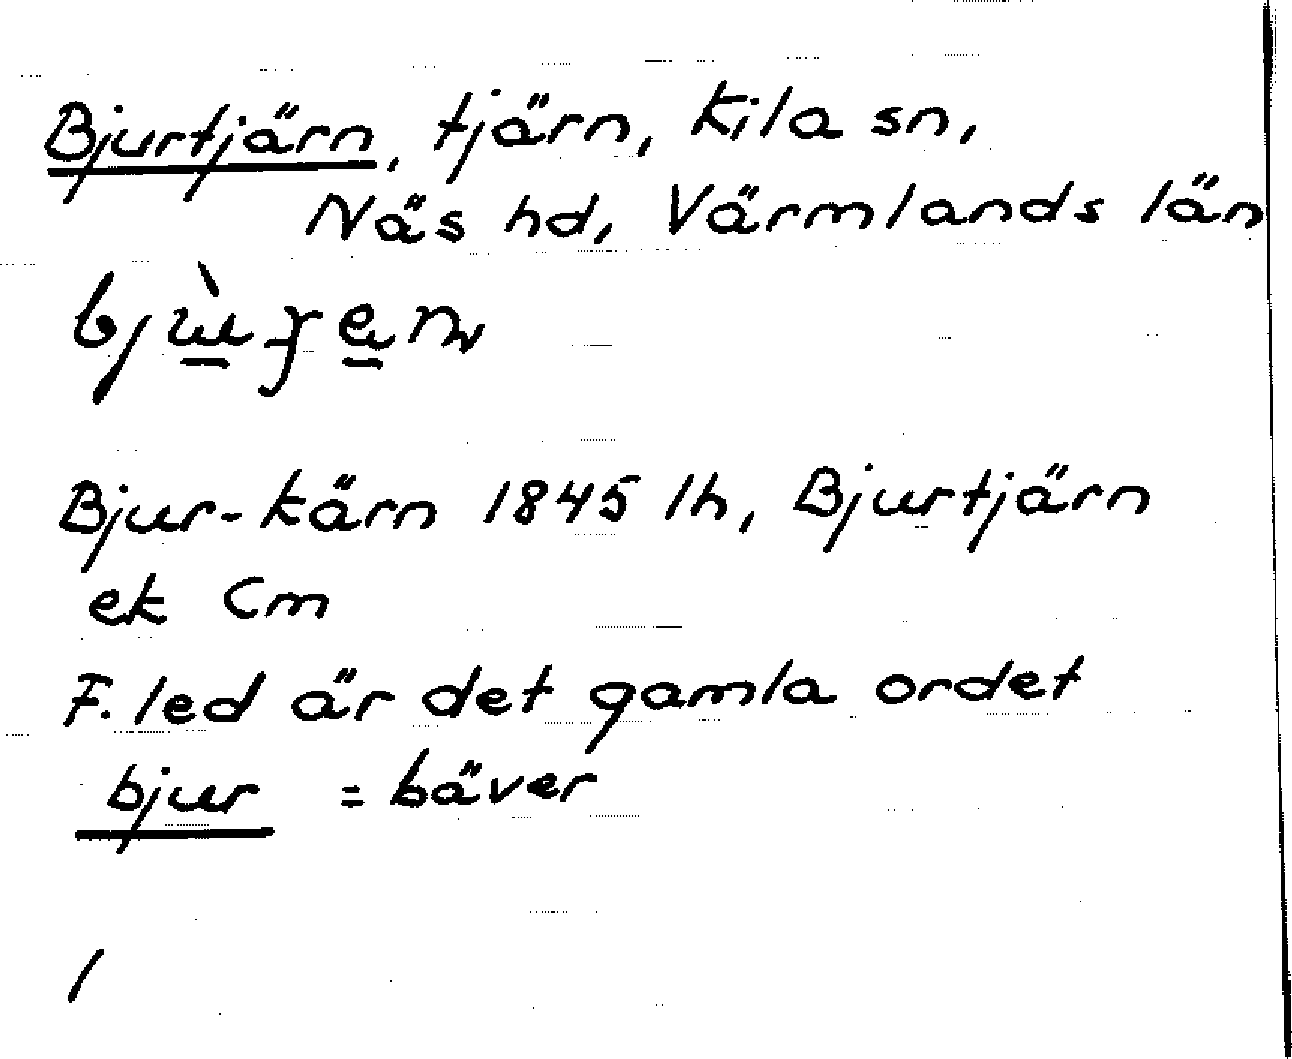 Bjurtjärn, tjärn, Kila sn,
Näs hd, Värmlands län
Bjur-kärn 1845 lh, Bjurtjärn
ek Cm
F. led är det gamla ordet
bjur = bäver
/